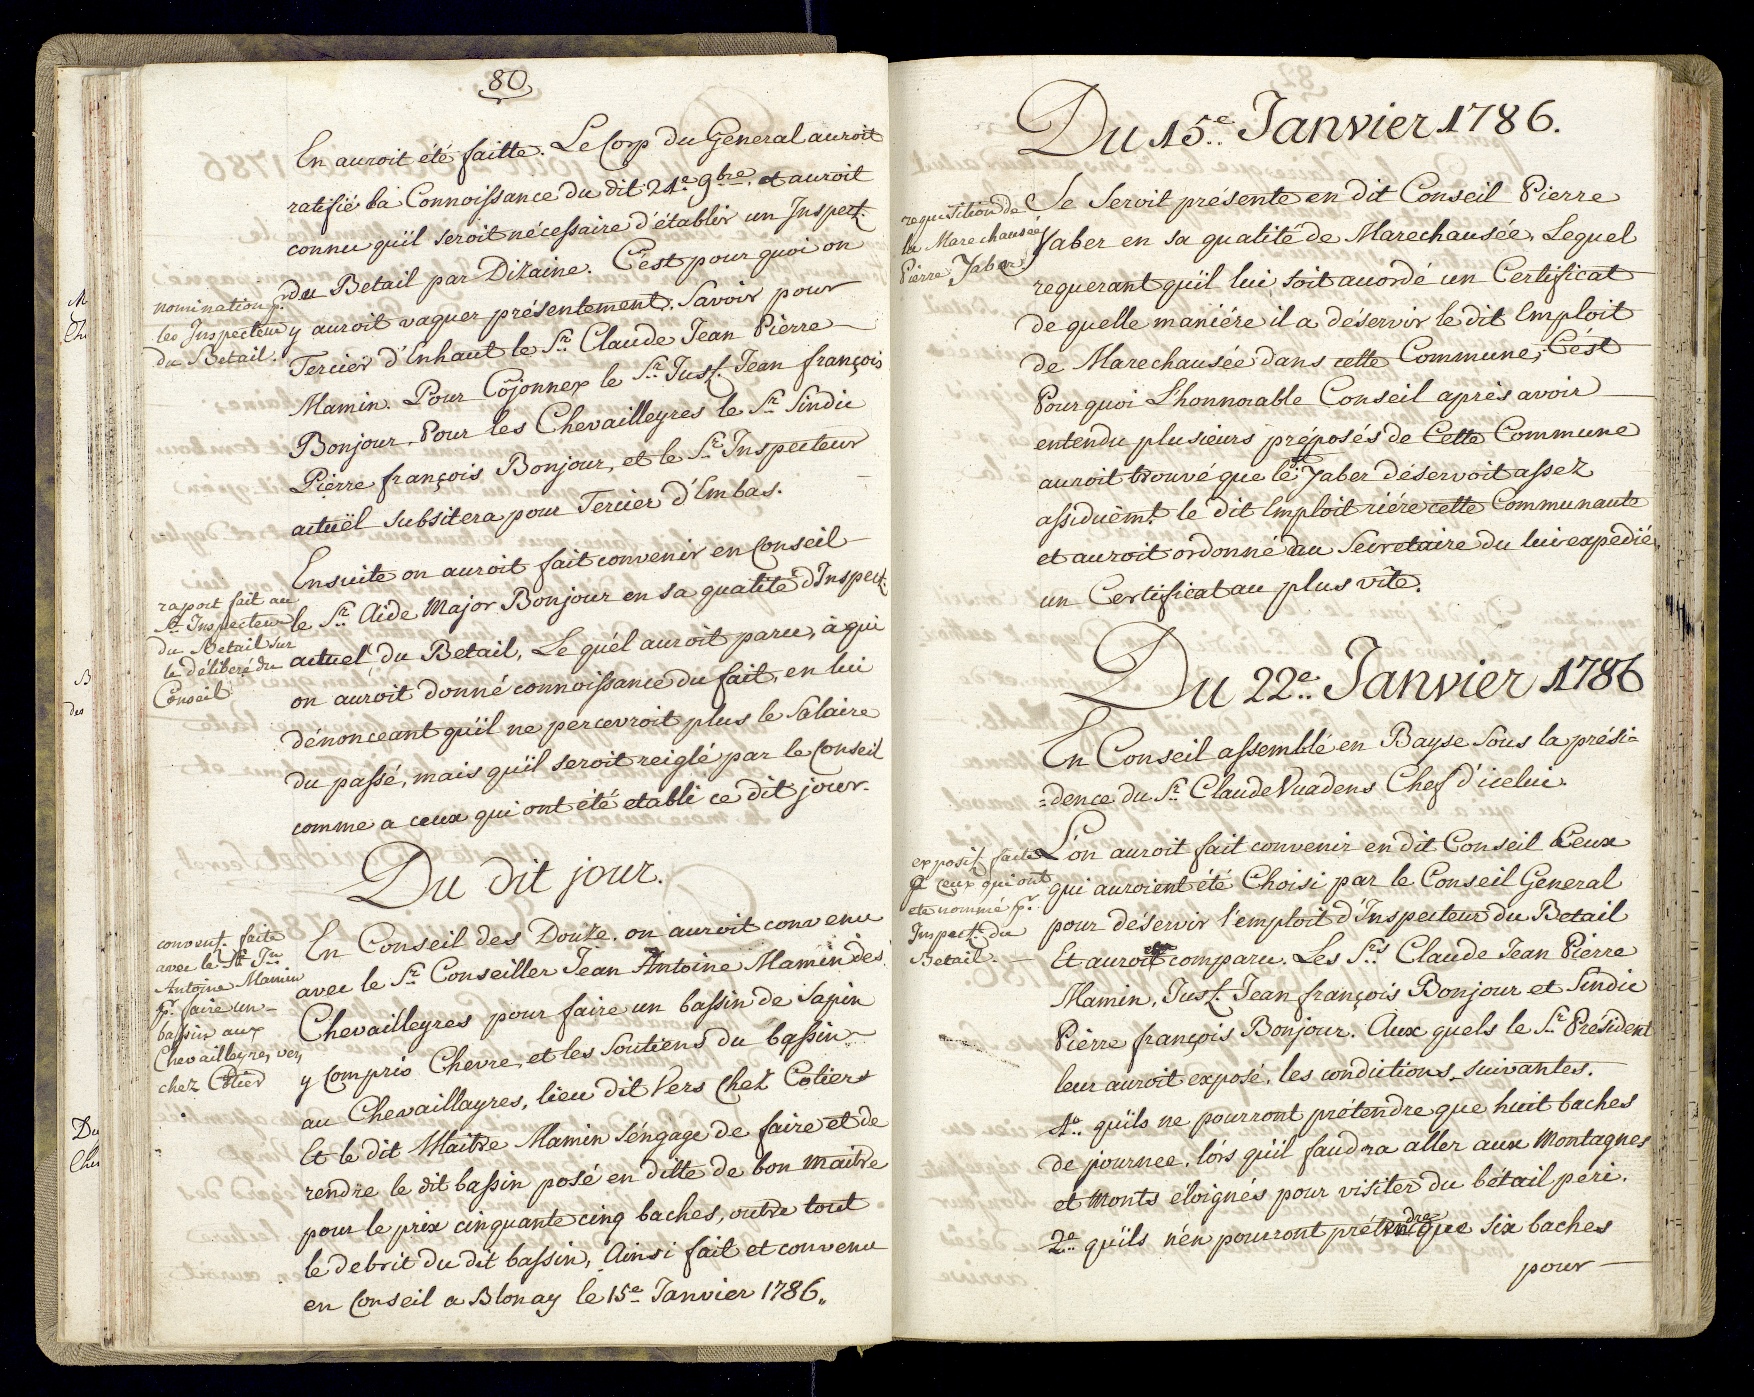 80
En auroit été faitte. Le Corp du General auroit
ratifié la Connoissance du dit 21e. 9bre. et auroit
connu qu'il seroit nécessaire d'établir un Inspect.
nomination pr.
les Inspecteur
du Betail.
du Betail par Dizaine. C'est pour quoi on
y auroit vaquer présentement. Savoir pour
Tercier d'Enhaut le Sr. Claude Jean Pierre
Mamin. Pour Cojonnex le Sr. Just. Jean françois
Bonjour. Pour les Chevailleyres le Sr. Sindic
Pierre françois Bonjour, et le Sr. Inspecteur
actuël subsitera pour Tercier d'Embas.
raport fait au
Sr. Inspecteur
du Betail sur
le déliberé du
Conseil
Ensuite on auroit fait convenir en Conseil
le Sr. Aide Major Bonjour en sa qualité d'Inspect.
actuel du Betail, Le quél auroit paru, à qui
on auroit donné connoissance du fait, en lui
dénonceant qu'il ne percevroit plus le Salaire
du passé, mais qu'il seroit reiglé par le Conseil
comme a ceux qui ont été etabli ce dit jour.
Du dit jour.
convent. faite
avec le Sr. Jn.
Antoine Mamin
pr. faire un
bassin aux
Chevailleyres, ver,
chez Cotier
En Conseil des Douze. on auroit convenu
avec le Sr. Conseiller Jean Antoine Mamin des
Chevailleyres pour faire un bassin de Sapin
y Compris Chevre, et les Soutiens du bassin
au Chevaillayres, lieu dit Vers Chez Cotier
Et le dit Maitre Mamin s'éngage de faire et de
rendre le dit bassin posé en ditte de bon maitre
pour le prix cinquante cinq baches, outre tout
le debrit du dit bassin, Ainsi fait et convenu
en Conseil a Blonay le 15e. Janvier 1786.
Du 15e. Janvier 1786.
requisition de
la Marechausée
Pierre Jaber
Se Seroit présente en dit Conseil Pierre
Jaber en sa qualité de Marechausée, Lequel
requerant qu'il lui soit acordé un Certificat
de quelle maniére il a déservir le dit Emploit
de Marechausée dans cette Commune, C'ést
Pourquoi L'honnorable Conseil aprés avoir
entendu plusieurs préposés de Cette Commune
auroit trouvé que le dt. Jaber déservoit assez
assiduémt. le dit Emploit riére cette Communaute
et auroit ordonné au Secretaire du lui expédiér
un Certificat au plus vîte.
Du 22e. Janvier 1786
En Conseil assemblé en Bayse Sous la prési=
=dence du Sr. Claude Vuadens Chef d'icelui.
exposit. faite
à ceux qui ont
eté nommé pr.
Inspect. du
Betail.
L'on auroit fait convenir en dit Conseil Ceux
qui auroient été Choisi par le Conseil General
pour déservir l'emploit d'Inspecteur du Betail
Et auroit comparu. Les Srs. Claude Jean Pierre
Mamin, Just. Jean françois Bonjour et Sindic
Pierre françois Bonjour. Aux quels le Sr. Président
leur auroit exposé, les condictions suivantes.
1o. qu'ils ne pourront prétendre que huit baches
de journee, lórs qu'il faudra aller aux Montagnes
et Monts éloignés pour visiter du bétail peri.
2o. qu'ils n'én pourront prétendre que six baches
pour